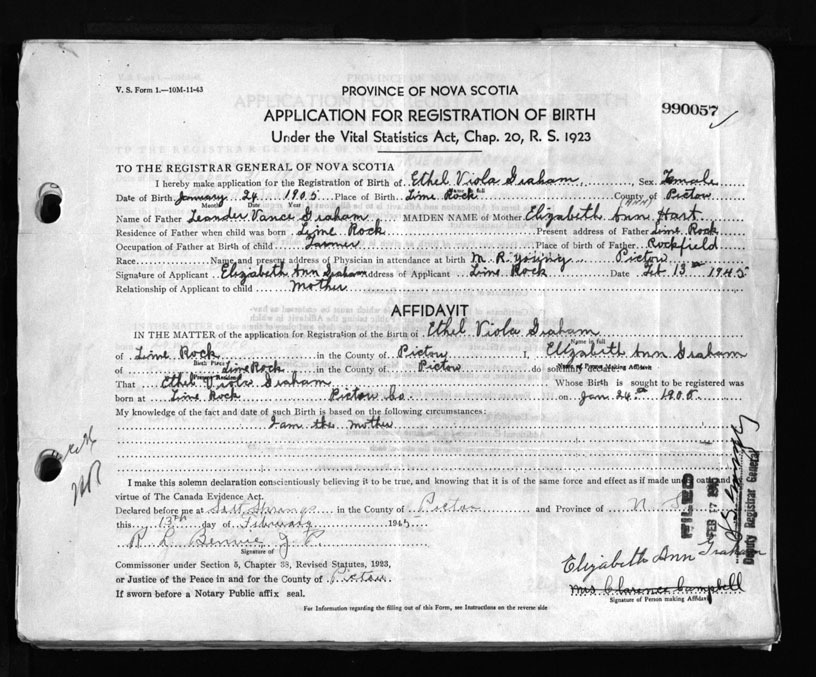 V. S. Form 1.—10M-11-43
PROVINCE OF NOVA SCOTIA
990057
APPLICATION FOR REGISTRATION OF BIRTH
Under the Vital Statistics Act, Chap. 20, R. S. 1923
TO THE REGISTRAR GENERAL OF NOVA SCOTIA
I hereby make application for the Registration of Birth of Ethel Viola Graham Sex Female
Name in full
Date of Birth January 24 1905 Place of Birth Lime Rock County of Pictou
Month Date Year
Name of Father Leander Vance Graham MAIDEN NAME of Mother Elizabeth Ann Hart
Residence of Father when child was born Lime Rock Present address of Father Lime Rock
Occupation of Father at Birth of child Farmer Place of birth of Father Rockfield
Race Name and present address of Physician in attendance at birth M. R. Young Pictou
Signature of Applicant Elizabeth Ann Graham Address of Applicant Lime Rock Date Feb 13th 1945
Relationship of Applicant to child Mother
AFFIDAVIT
IN THE MATTER of the application for Registration of the Birth of Ethel Viola Graham
Name in full
of Lime Rock in the County of Pictou I, Elizabeth Ann Graham
Birth Place Name of Person Making Affidavit
of Lime Rock in the County of Pictou do solemnly declare
Present Residence
That Ethel Viola Graham Whose Birth is sought to be registered was
born at Lime Rock Pictou Co on Jan 24th 1905
My knowledge of the fact and date of such Birth is based on the following circumstances:
I am the mother
I make this solemn declaration conscientiously believing it to be true, and knowing that it is of the same force and effect as if made under oath and by
virtue of The Canada Evidence Act.
Declared before me at Salt Springs in the County of Pictou and Province of N. S.
this 13th day of February 1945
R L Bennie J. P.
Signature of
Commissioner under Section 5, Chapter 38, Revised Statutes, 1923,
or Justice of the Peace in and for the County of Pictou
If sworn before a Notary Public affix seal.
Elizabeth Ann Graham
Mrs Clarence Campbell
Signature of Person making Affidavit
For Information regarding the filling out of this Form, see Instructions on the reverse side
FILED
FEB 17 1945
Deputy Registrar General